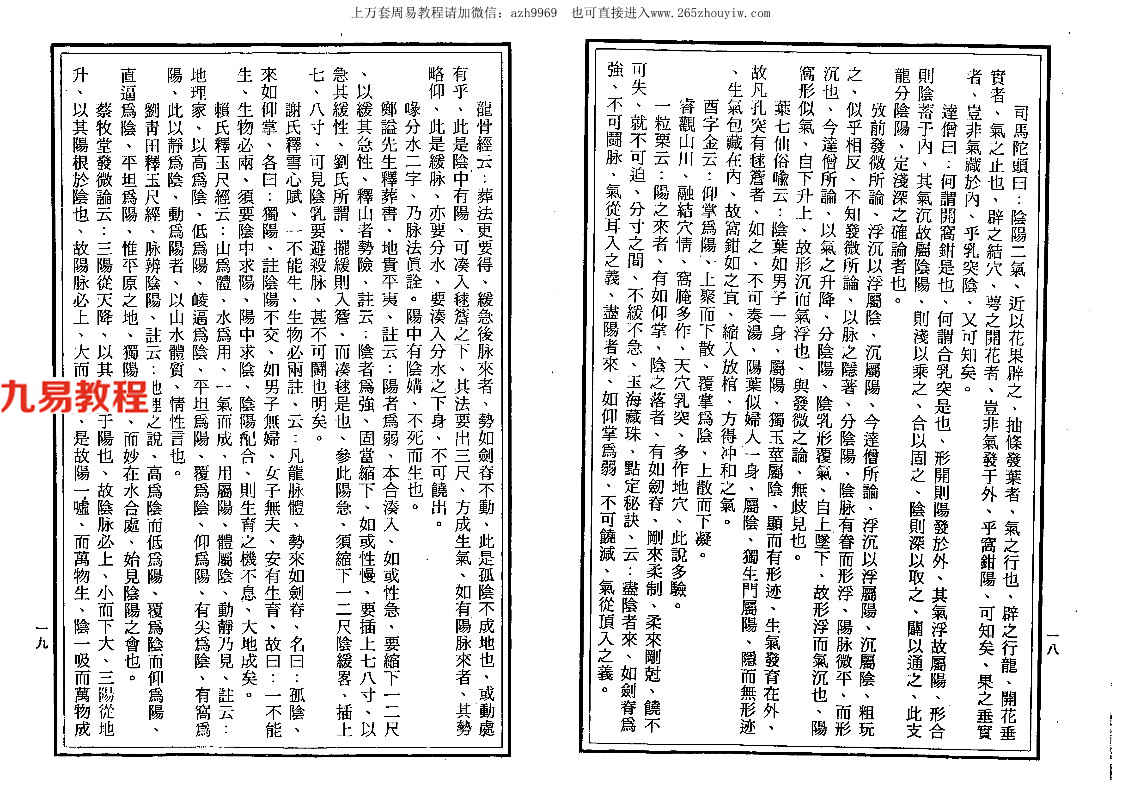 上万套周易教程请加微信：azh9969　也可直接进入www.265zhouyiw.com
司馬陀頭曰：陰陽二氣、近以花果辟之、抽條發葉者、氣之行也、辟之行龍、開花垂
實者、氣之止也、辟之結穴、萼之開花者、豈非氣發于外、乎窩鉗陽、可知矣、果之垂實
者、豈非氣藏於內、乎乳突陰、又可知矣。
達僧曰：何謂開窩鉗是也、何謂合乳突是也、形開則陽發於外、其氣浮故屬陽、形合
則陰蓄于內、其氣沉故屬陰陽、則淺以乘之、合以固之、陰則深以取之、闢以通之、此支
龍分陰陽、定淺深之確論者也。
攷前發微所論、浮沉以浮屬陰、沉屬陽、今達僧所論、浮沉以浮屬陽、沉屬陰、粗玩
之、似乎相反、不知發微所論、以脉之隱著、分陰陽、陰脉有脊而形浮、陽脉微平、而形
沉也、今達僧所論、以氣之升降、分陰陽、陰乳形覆氣、自上墜下、故形浮而氣沉也、陽
窩形似氣、自下升上、故形沉而氣浮也、與發微之論、無歧見也。
葉七仙俗喩云：陰葉如男子一身、屬陽、獨玉莖屬陰、顯而有形迹、生氣發育在外、
故凡孔突有毬簷者、如之、不可奏湯、陽葉似婦人一身、屬陰、獨生門屬陽、隱而無形迹
、生氣包藏在內、故窩鉗如之宜、縮入放棺、方得冲和之氣。
酉字金云：仰掌為陽、上聚而下散、覆掌為陰、上散而下凝。
睿觀山川、融結穴情、窩腌多作、天穴乳突、多作地穴、此說多驗。
一粒粟云：陽之來者、有如仰掌、陰之落者、有如劒脊、剛來柔制、柔來剛尅、饒不
可失、就不可迫、分寸之間、不緩不急、玉海藏珠、點定秘訣、云：盡陰者來、如劍脊為
強、不可鬬脉、氣從耳入之義、盡陽者來、如仰掌為弱、不可饒減、氣從頂入之義。
一八
龍骨經云：葬法更要得、緩急後脉來者、勢如劍脊不動、此是孤陰不成地也、或動處
有乎、此是陰中有陽、可凑入毬簷之下、其法要出三尺、方成生氣、如有陽脉來者、其勢
略仰、此是緩脉、亦要分水、要湊入分水之下身、不可饒出。
喙分水二字、乃脉法眞詮。陽中有陰媾、不死而生也。
鄭謐先生釋葬書、地貴平夷、註云：陽者為弱、本合湊入、如或性急、要縮下一二尺
、以緩其急性、釋山者勢險、註云：陰者為強、固當縮下、如或性慢、要插上七八寸、以
急其緩性、劉氏所謂、擺緩則入簷、而凑毬是也、參此陽急、須縮下一二尺陰緩客、插上
七、八寸、可見陰乳要避殺脉、甚不可鬬也明矣。
謝氏釋雪心賦、一不能生、生物必兩註、云：凡龍脉體、勢來如劍脊、名曰：孤陰、
來如仰掌、各曰：獨陽、註陰陽不交、如男子無婦、女子無夫、安有生育、故曰：一不能
生、生物必兩、須要陰中求陽、陽中求陰、陰陽配合、則生育之機不息、大地成矣。
賴氏釋玉尺經云：山為體、水為用、一氣而成、用屬陽、體屬陰、動靜乃見、註云：
地理家、以高為陰、低為陽、峻逼為陰、平坦為陽、覆為陰、仰為陽、有尖為陰、有窩為
陽、此以靜為陰、動為陽者、以山水體質、情性言也。
劉靑田釋玉尺經、脉辨陰陽、註云：地理之說、高為陰而低為陽、覆為陰而仰為陽、
直逼為陰、平坦為陽、惟平原之地、獨陽、而妙在水合處、始見陰陽之會也。
蔡牧堂發微論云：三陽從天降、以其于陽也、故陰脉必上、小而下大、三陽從地
升、以其陽根於陰也、故陽脉必上、大而、是故陽一噓、而萬物生、陰一吸而萬物成
一九
九易教程